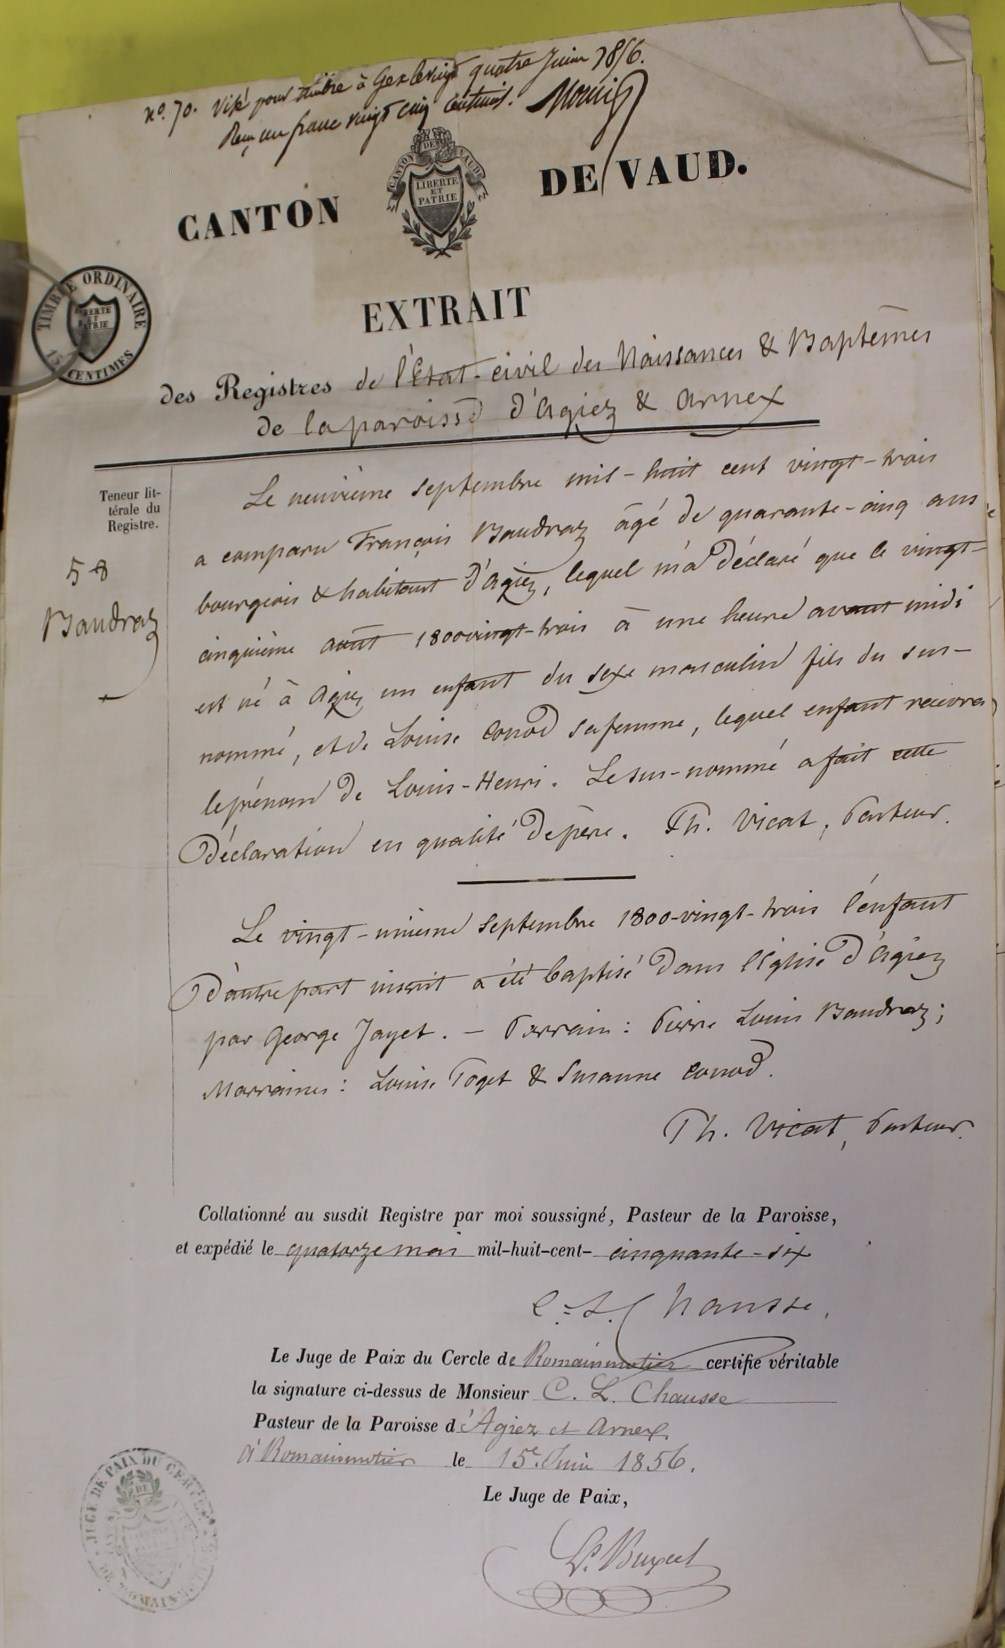 No. 70. Visé pour timbre à Gex le vingt quatre Juin 1856.
Reçu un franc vingt cinq centimes.
CANTON DE VAUD.
CANTON DE VAUD
LIBERTÉ
ET
PATRIE
TIMBRE ORDINAIRE
LIBERTÉ
ET
PATRIE
15 CENTIMES
EXTRAIT
des Registres de l'Etat-civil des Naissances & Baptêmes
de la paroisse d'Agiez & Arnex
Teneur lit-
térale du
Registre.
58
Baudraz
Le neuvième septembre mil-huit cent vingt-trois
a comparu François Baudraz âgé de quarante-cinq ans
bourgeois & habitant d'Agiez, lequel m'a déclaré que le vingt-
cinquième août 1800 vingt-trois à une heure avant midi
est né à Agiez un enfant du sexe masculin fils du sus-
nommé, et de Louise Conod sa femme, lequel enfant recevra
le prénom de Louis-Henri. Le sus-nommé a fait cette
Déclaration en qualité de père. Th. Vicat, Pasteur.
Le vingt-unième Septembre 1800-vingt-trois l'enfant
d'autre part inscrit a été baptisé dans l'église d'Agiez
par George Jayet. — Parrain: Pierre Louis Baudraz;
Marraines: Louise Poget & Susanne Conod.
Th. Vicat, Pasteur.
Collationné au susdit Registre par moi soussigné, Pasteur de la Paroisse,
et expédié le quatorze mai mil-huit-cent- cinquante-six
C. L. Chausse.
Le Juge de Paix du Cercle de Romainmotier certifie véritable
la signature ci-dessus de Monsieur C. L. Chausse
Pasteur de la Paroisse d'Agiez et Arnex.
à Romainmotier le 15e. Juin 1856.
Le Juge de Paix,
JUGE DE PAIX DU CERCLE
DE ROMAINMOTIER